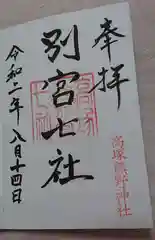 奉拝
別宮七社
高塚熊野神社
令和二年八月十四日